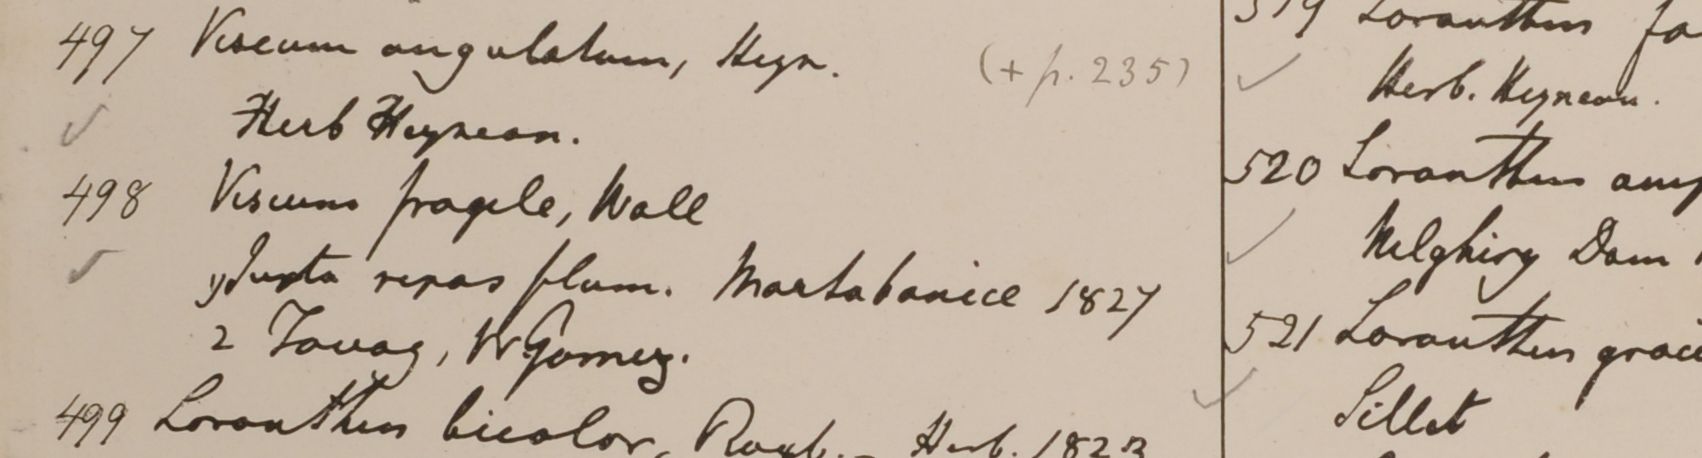 497 Viscum angulatum, Heyn. (+ p. 235)
Herb Heynean.
498 Viscum fragile, Wall
1 Juxta ripas flum. Martabanice 1827
2 Tavoy, W Gomez.
499 Loranthus bicolor, Roxb. - Herb. 1823
519 Loranthus fa
Herb. Heynean.
520 Loranthus amp
Nelghiry Dom
521 Loranthus graci
Sillet